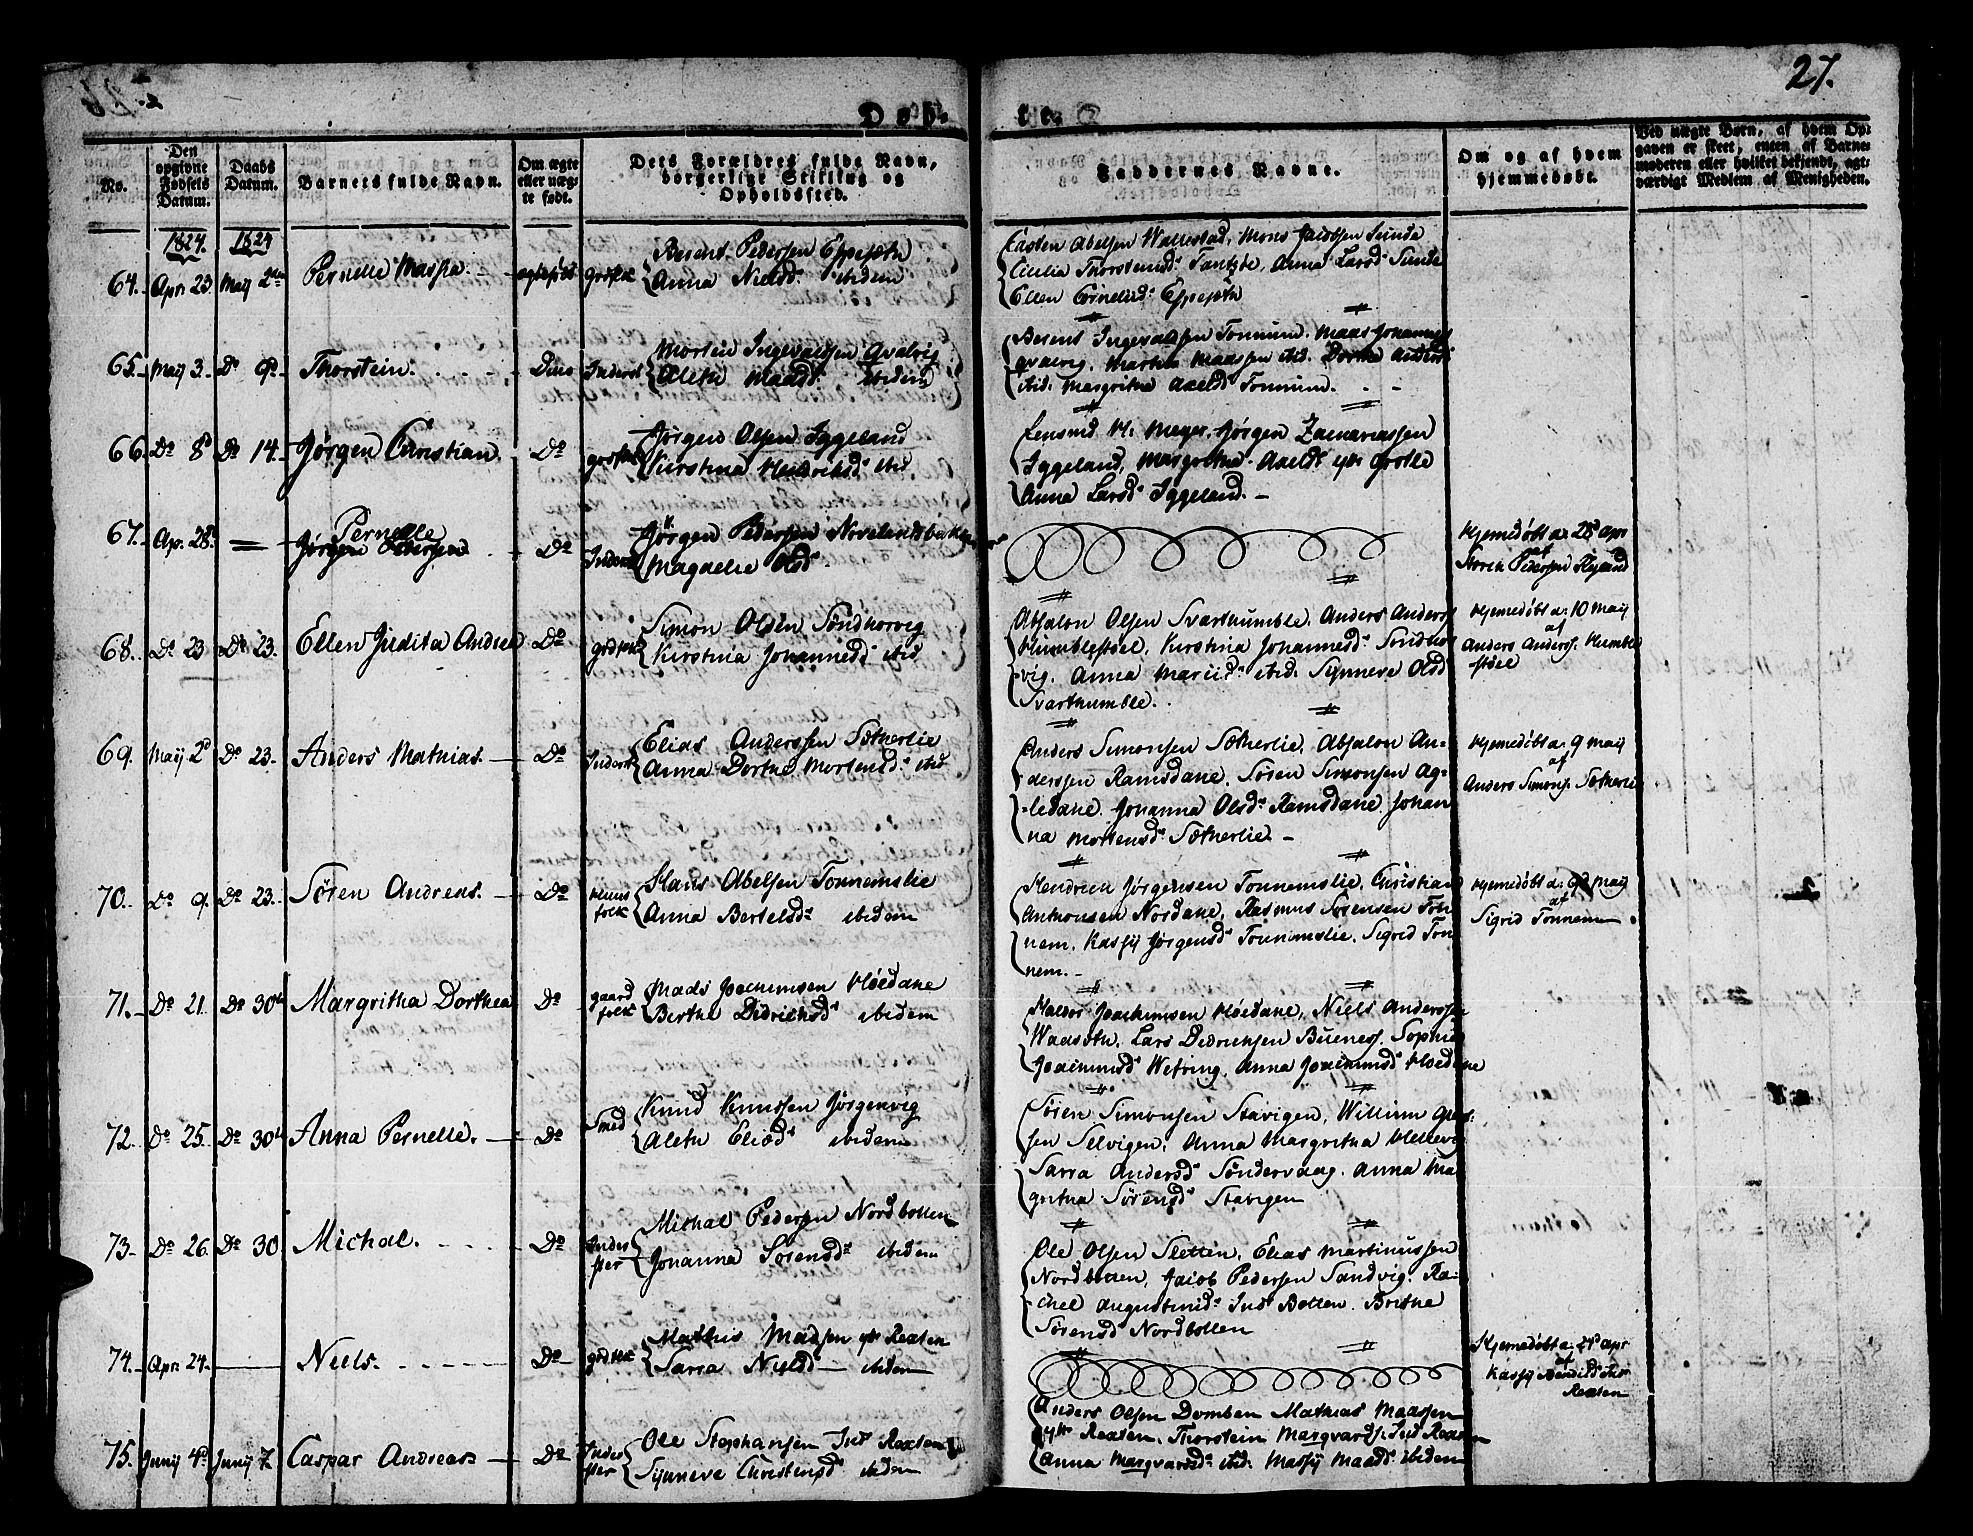 27.
Døb- te.
No.
Den opgivne Fødsels Datum.
Daabs Datum.
Barnets fulde Navn.
Om ægte eller uægte født.
Dets Forældres fulde Navn, borgerlige Stilling og Opholdssted.
Faddernes Navne.
Om og af hvem hjemmedøbt.
Ved uægte Børn, af hvem Opgaven er skeet, enten af Barnemoderen eller hvilket bekjendt, agtværdigt Medlem af Menigheden.
1824. 1824
64. Apr. 23. May 2den Pernelle Massia. ægtefødt
Berent Pedersen
Anna Nielsd. ibidem
Casten Abelsen Wallestad, Mons Jacobsen Sunde
Cicilia Thorsteinsd. Anna Larsd Sunde
Ellen Cornelisd.
65. May 3. Do 9d Thorstein. Ditto Inderst
Morten Ingevaldsen Qvalvig
Aleth Maasd. ibidem
Berent Ingevaldsen Tonnum. Maas Johannes
Qvalvig. Marthe Maassen ibid. Dorthe Anders
ibid. Margritha Axelsd Tonnum.
66. Do 8d Do 14. Jørgen Christian. Do
Jørgen Olsen Iggeland
Kirstina Hendriksd. ibid
Lensmd H. Meyer. Jørgen Zacariassen
Iggeland, Margritha Axelsd.
Anna Larsd Iggeland.
67. Ap. 28d = Pernelle
Jørgen Pedersen Do
Jørgen Pedersen Novelandsbakken
Magdelie Olsd.
Hjemedøbt d: 28d Apr
af
Pedersen
68. Do 23 Do 23. Ellen Judita Andrea Do
Simon Olsen Søndhorvig
Kirstina Johannesd. ibid
Absalon Olsen Svarthumble. Anders Anders
Humblestøel, Kirstina Johannesd. Sondhor
vig. Anna Mariid. ibid. Synneve Olsd
Svarthumble.
Hjemedøbt d: 10 May
af
Anders Anders. Humble
støel
69. May 2d Do 23. Anders Mathias. Do Inderst
Elias Anderssen Sætherlie
Anna Dorthe Mortensd. ibid
Anders Simonsen Sætherlie, Absalon An-
derssen Ramsdane. Søren Simonsen Ag-
ledane. Johanna Olsd. Ramsdane Johan
na Mortensd. Sætherlie.
Hjemedøbt d: 9 May
af
Anders Simons. Sætherlie
70. Do 9. Do 23. Søren Andreas. Do
Huus
folk
Hans Abelsen Tonnemslie
Anna Bertelsd. ibidem
Hendrich Jørgensen Tonnemslie. Christian
Anthonsen Nordane, Rasmus Sørensen Ton
nem. Kassy Jørgensd. Tonnemslie. Sigrid Ton
nem.
Hjemedøbt d: 9d May
af
Sigrid Tonnem
71. Do 21. Do 30te Margritha Dorthea Do
gaard
folk
Mads Joachimsen Høedane
Berthe Didrichsd ibidem
Joachimsen Høedane, Niels Andersse
Lars Didrichsen Buenes. Sophie
Joachimsd Wefring. Anna Joachimsd Hoedane
72. Do 25. Do 30te Anna Pernelle. Do Smed
Knud Knudsen Jørgenvig
Aleth Eliasd. ibidem
Søren Simonsen Stavigen, Willum
sen Selvigen. Anna Margritha Hellevig
Sarra Andersd Søndervaag. Anna Ma
gritha Sørensd. Stavigen
73. Do 26. Do 30. Michal. Do
Inder
ster
Michal Pedersen Nordbotten
Johanna Sørensd. ibidem
Ole Olsen Sletten, Elias Martinussen
Nordbotten, Jacob Pedersen Sandvig. Ra-
chel Augustinsd. Ind Botten. Brithe
Sørensd Nordbotten
74. Apr. 24. Niels. Do
Mathis Madsen ytr Rexten
Sarra Nielsd ibidem
Hjemedøbt d: Apr
af
Kassy
Rexten
75. Juny 4d Juny 7. Caspar Andreas Do
Inder
ster
Ole Stephansen Ind Rexten
Synneve Christensd ibidem
Anders Olsen Domben Mathias Maassen
ytr Rexten. Thorstein Marqvards. Ind Rexten
Anna Marqvardsd. ibid. Massy Maasd ibidem